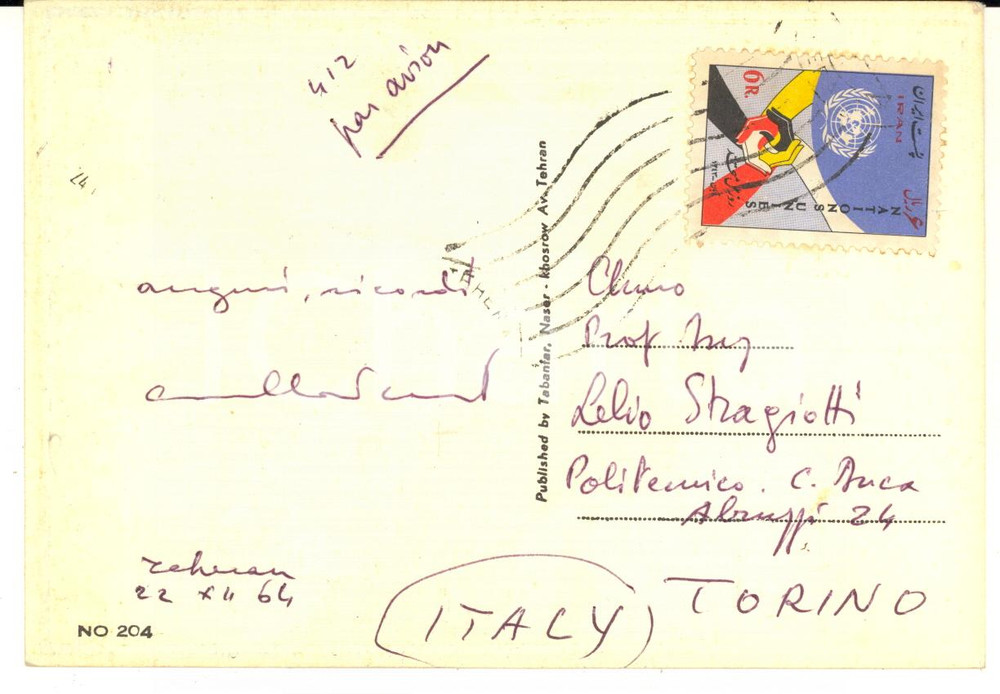 412
par avion
6 R.
IRAN
پست ایران
NATIONS UNIES
auguri, ricordi
Published by Tabanfar, Naser - khosrow Av. Tehran
Chmo
Prof Ing
Lelio Stragiotti
Politecnico. C. Duca
Abruzzi 24
TORINO
(ITALY)
Teheran
22 XII 64
NO 204